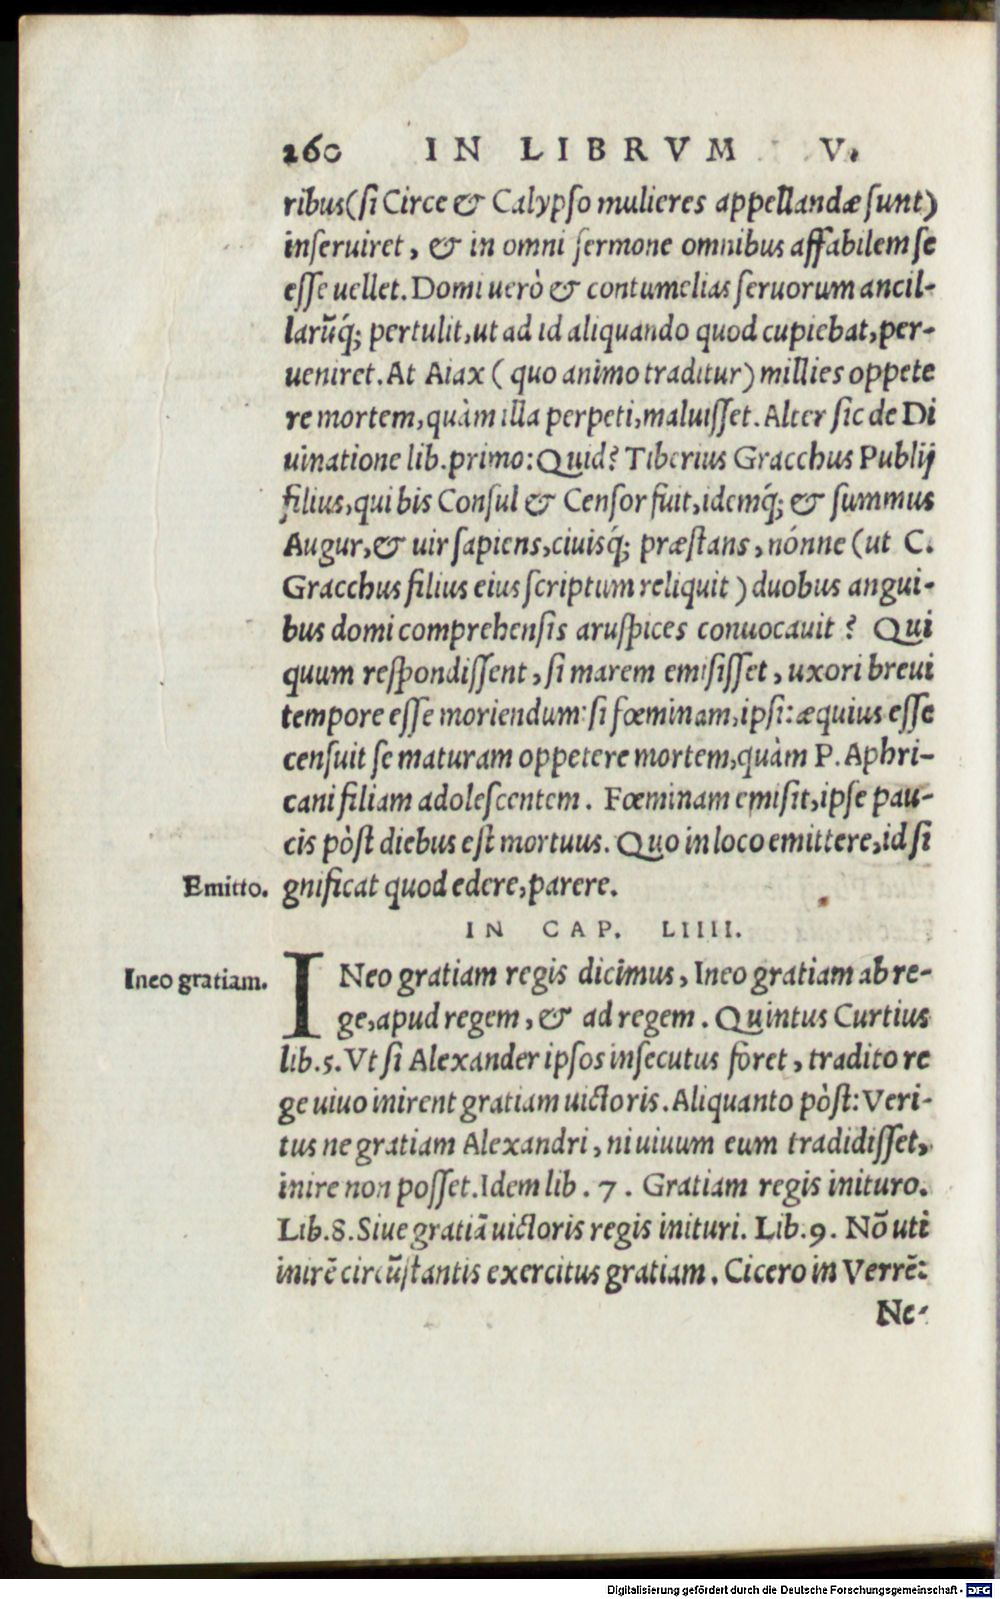 260 IN LIBRVM V.
ribus (si Circe & Calypso mulieres appellandæ sunt)
inseruiret, & in omni sermone omnibus affabilem se
esse uellet. Domi uerò & contumelias seruorum ancil-
larũq́; pertulit, ut ad id aliquando quod cupiebat, per-
ueniret. At Aiax ( quo animo traditur) millies oppete
re mortem, quàm illa perpeti, maluisset. Alter sic de Di
uinatione lib. primo: Quid? Tiberius Gracchus Publij
filius, qui bis Consul & Censor fuit, idemq́; & summus
Augur, & uir sapiens, ciuisq́; præstans, nónne (ut C.
Gracchus filius eius scriptum reliquit ) duobus angui-
bus domi comprehensis aruspices conuocauit ? Qui
quum respondissent, si marem emisisset, uxori breui
tempore esse moriendum: si fœminam, ipsi: æquius esse
censuit se maturam oppetere mortem, quàm P. Aphri-
cani filiam adolescentem. Fœminam emisit, ipse pau-
cis pòst diebus est mortuus. Quo in loco emittere, id si
Emitto. gnificat quod edere, parere.
IN CAP. LIIII.
Ineo gratiam. INeo gratiam regis dicimus, Ineo gratiam ab re-
ge, apud regem, & ad regem. Quintus Curtius
lib. 5. Vt si Alexander ipsos insecutus foret, tradito re
ge uiuo inirent gratiam uictoris. Aliquanto pòst: Veri-
tus ne gratiam Alexandri, ni uiuum eum tradidisset,
inire non posset. Idem lib. 7. Gratiam regis inituro.
Lib. 8. Siue gratiã uictoris regis inituri. Lib. 9. Nõ uti
inirẽ circũstantis exercitus gratiam. Cicero in Verrẽ:
Ne-
Digitalisierung gefördert durch die Deutsche Forschungsgemeinschaft - DFG